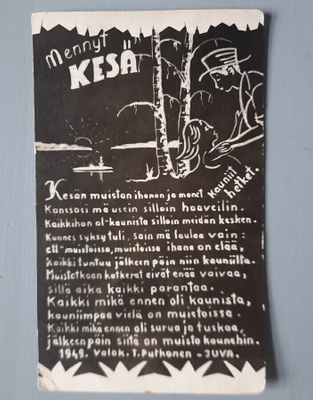 Mennyt
KESÄ
Kesän muistan ihanan ja monet kauniit hetket.
Kanssasi mä usein silloin haaveilin.
Kaikkihan ol-kaunista silloin meidän kesken.
Kunnes syksy tuli, sain mä laulaa vain:
ett-muistoissa, muistoissa ihana on elää,
kaikki tuntuu jälkeen päin niin kauniilta.
Muistotkaan katkerat eivät enää vaivaa,
sillä aika kaikki parantaa.
Kaikki mikä ennen oli kaunista,
kauniimpaa vielä on muistoissa.
Kaikki mikä ennen oli surua ja tuskaa,
jälkeen päin siitä on muisto kaunehin.
1949. Valok. T. Puthonen - JUVA.